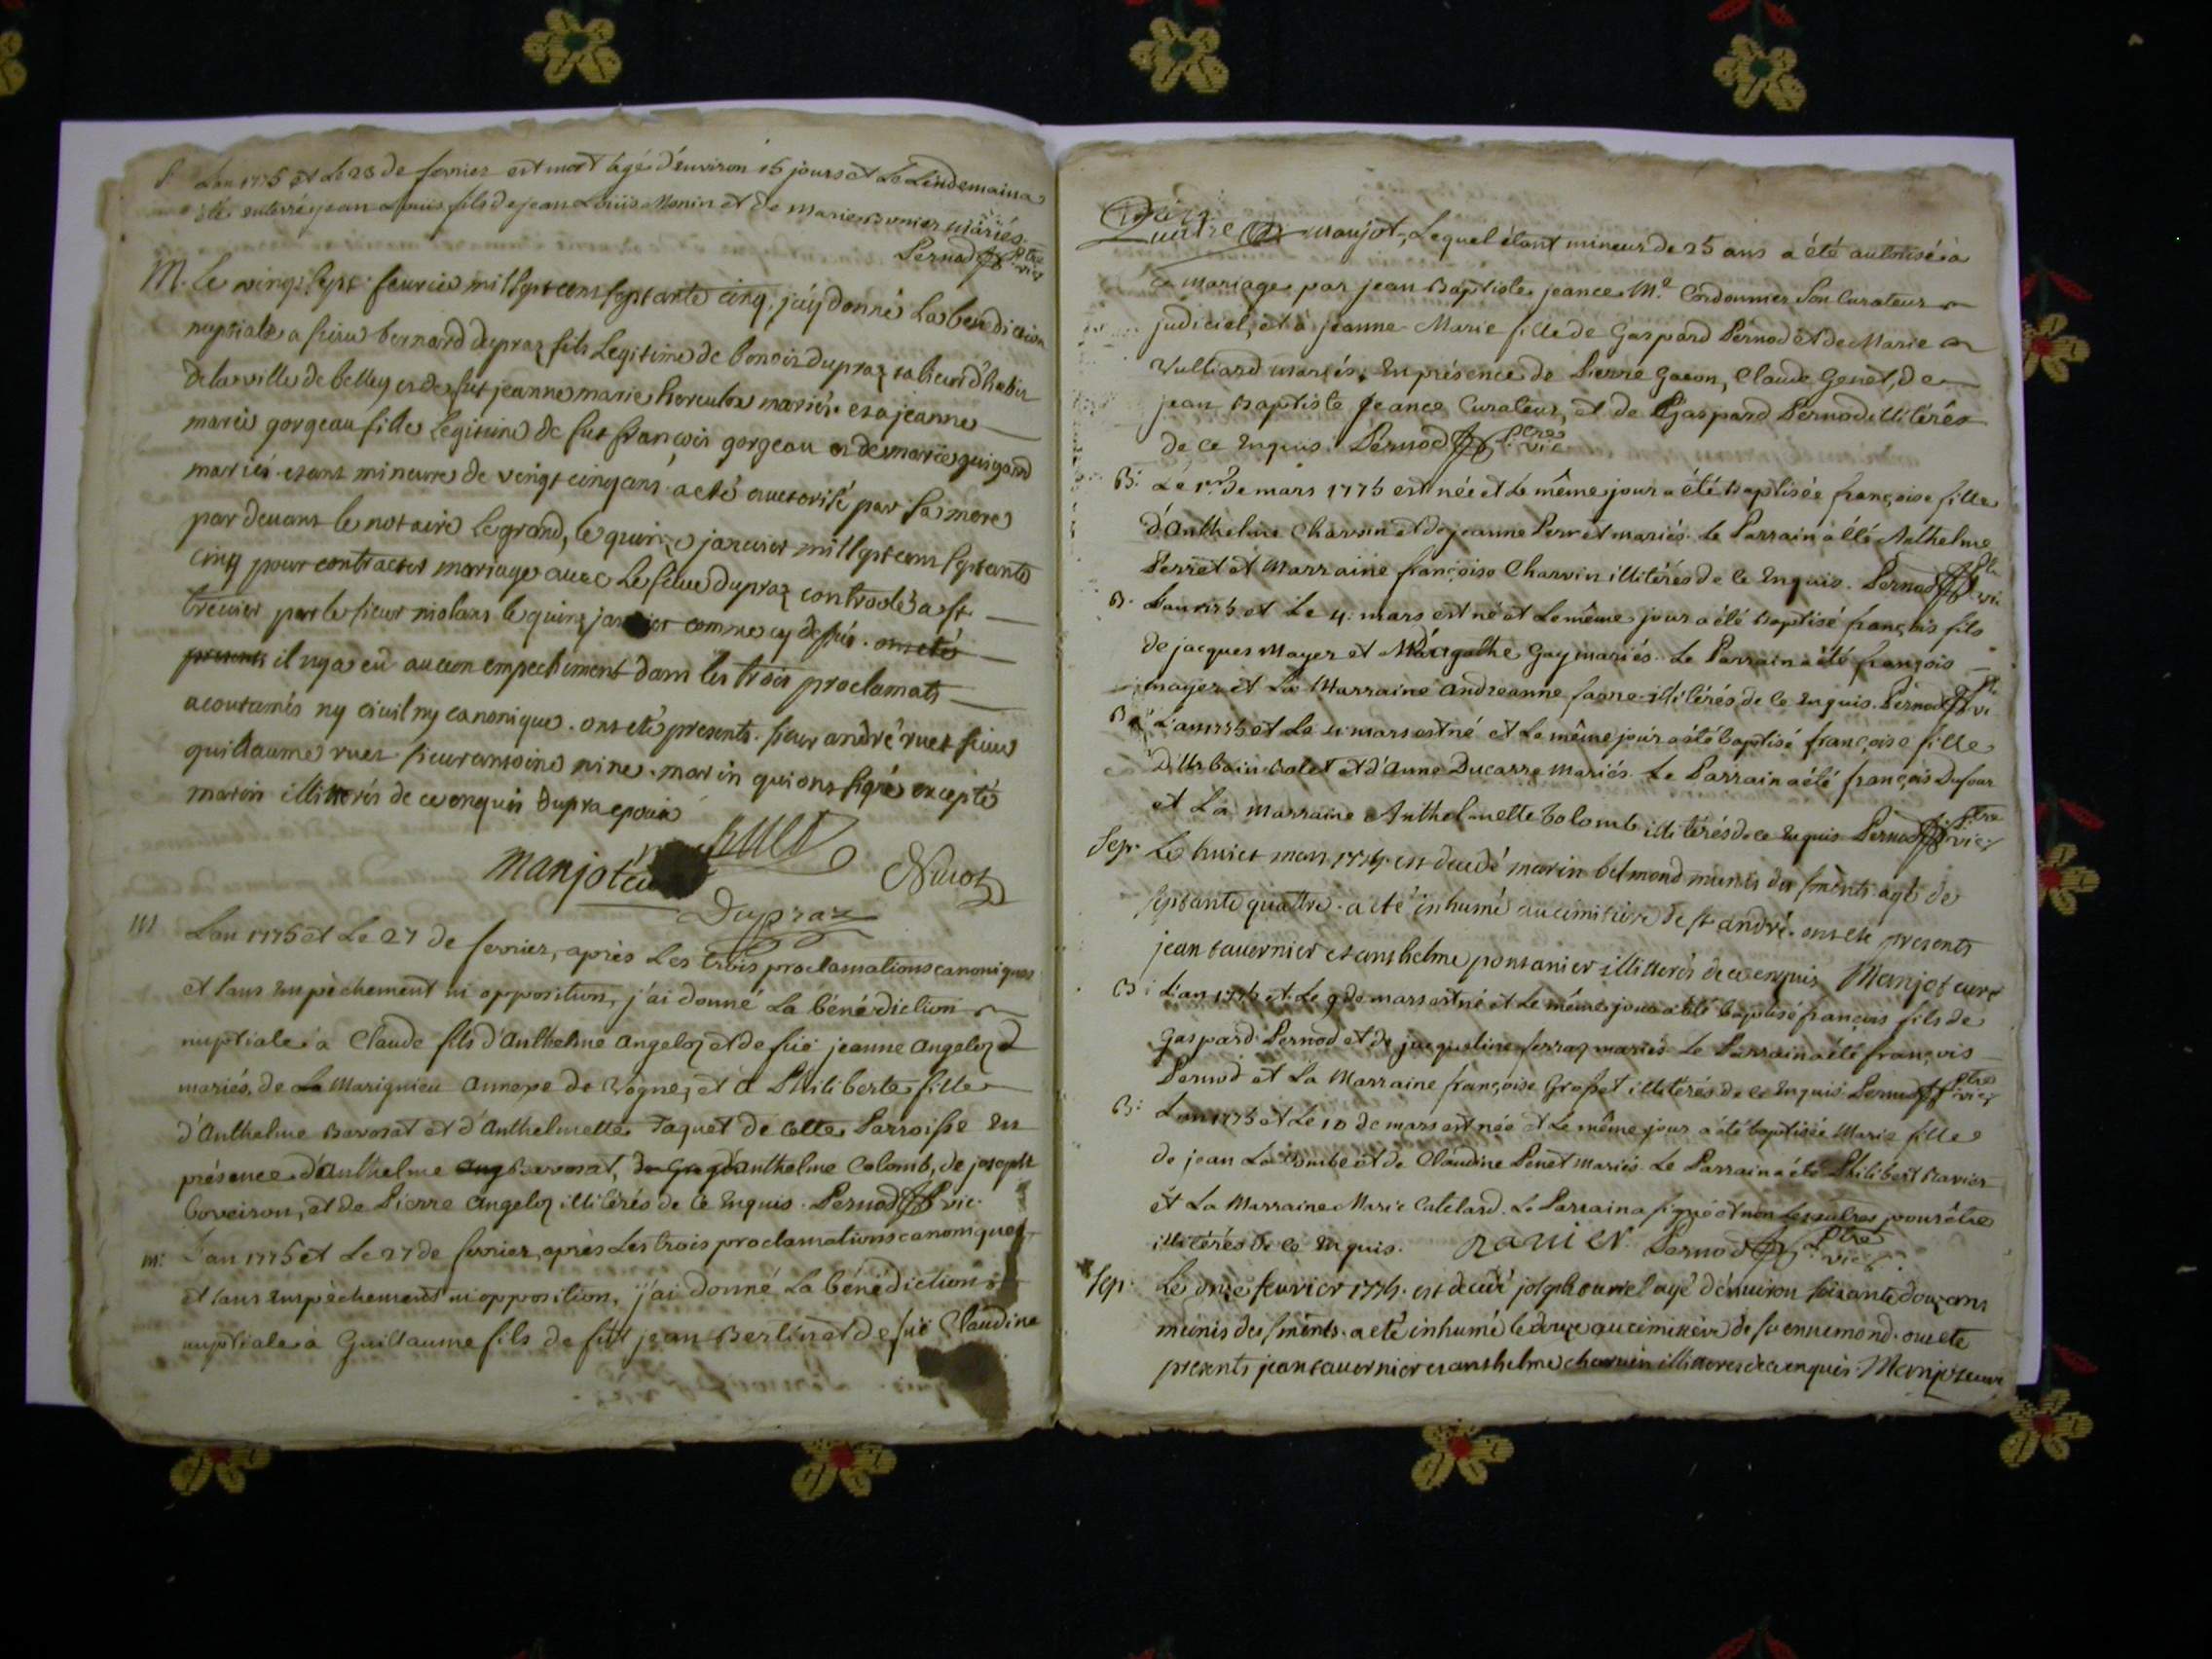 S. Lan 1775 et le 28 de fevrier est mort agé d'environ 15 jours et Le Lendemain a
été enterré jean Louis fils de jean Louis Monin et de Marie mariés.
Pernod Ptre vic.
M. Le vingt sept fevrier mil sept cent septante cinq, j'ay donné la benediction
nuptiale a sieur bernard dupraz fils Legitime de benoit dupraz
de la ville de belley et de fut jeanne marie mariés et a jeanne
marie gorgeau fille legitime de fut françois gorgeau et de marie guigard
mariés etant mineure de vingt cinq ans a eté auctorisé par sa mere
par devant le notaire Legrand, le quinze janvier mil sept cent septante
cinq pour contracter mariage avec le sieur dupraz controlé a st
trevier par le sieur molans le quinz janvier comme cy dessus. onteté
presents il ny a eû aucun empechement dans les trois proclamats
acoutumés ny civil ny canonique. ont eté presents. sieur andré ruet sieur
guillaume ruet. sieur antoine nine. marin qui ont signé excepté
marin illitterés de ce enquis
manjot ruet
Dupraz
M Lan 1775 et Le 27 de fevrier, après Les trois proclamations canoniques
et sans Empêchement ni opposition, j'ai donné La bénédiction
nuptiale à Claude fils d'Anthelme Angeloz et de fuë jeanne Angeloz
mariés, de La Marignieu Annexe de Vogne, et à Philiberte fille
d'Anthelme Bavosat et d'Anthelmette Taquet de Cette Parroisse En
présence d'Anthelme Ang Bavosat, de Greg d'anthelme Colomb, de joseph
boveiron, et de Pierre Angeloz illitérés de ce Enquis. Pernod vic.
m: Lan 1775 et Le 27 de fevrier, après Les trois proclamations canoniques
et sans Empêchement ni opposition, j'ai donné La bénédiction
nuptiale à Guillaume fils de fût jean Berlin et de fuë Claudine
manjot, Lequel étant mineur de 25 ans a été autorisé à
ce mariage par jean Baptiste jeance Me Cordonnier Son Curateur
judiciel, et à jeanne Marie fille de Gaspard Pernod et de Marie
Vulliard mariés; En présence de Pierre Gacon, Claude Genet, de
jean Baptiste Jeance Curateur, et de Gaspard Pernod illitérés
de ce Enquis. Pernod Ptre vic
B: Le 1er de mars 1775 est née et le même jour a été baptisée françoise fille
d'Anthelme Charvin et de jeanne Perret mariés. Le Parrain a été Anthelme
Perret et Marraine françoise Charvin illitérés de ce Enquis. Pernod Ptre vi.
B. Lan 1775 et Le 4. mars est né et Le même jour a été baptisé françois fils
de jacques Mayer et agathe Gay mariés. Le Parrain a été françois
mayer et La Marraine andreanne illitérés de ce Enquis. Pernod Ptre vi
B L'an 1775 et Le 4 mars est né et Le même jour a été baptisé françoise fille
D'Urbain Bolet et d'Anne Ducarre mariés. Le Parrain a été françois Dufour
et La Marraine Anthelmette Colomb illitérés de ce Enquis Pernod Ptre vic
Sep. Le huict mars 1775. est decedé marin belmond munis des sments. agé de
septante quattre. a eté inhumé au cimitiere de st andré. ont eté presents
jean tavernier et anthelme pontanier illitterés de ce enquis Manjot curé
B: L'an 1775 et Le 9 de mars est né et Le même jour a été baptisé françois fils de
Gaspard Pernod et de jacqueline ferraz mariés Le Parrain a été françois
Pernod et La Marraine françoise Grosset illitérés de ce Enquis Pernod Ptre vic
B: Lan 1775 et Le 10 de mars est née et Le même jour a été baptisée Marie fille
de jean La Combe et de Claudine Penet mariés. Le Parrain a été Philibert Ravier
et La Marraine Marie Catelard. Le Parrain a signé et non Les autres pour être
illitérés de ce Enquis. Ravier. Pernod Ptre vic
Sep. Le onze fevrier 1775. est decedé joseph agé d'environ soixante douz ans
munis des sments. a eté inhumé le douze au cimittiere de st ennemond. ont eté
presents jean tavernier et anthelme charvin illitteres de ce enquis. Manjot curé